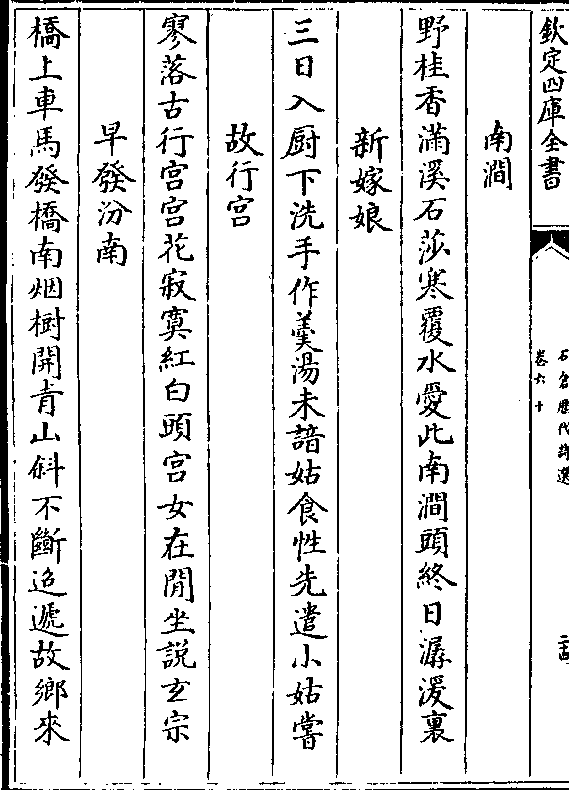 欽定四庫全書
石倉歷代詩選
卷六十
南澗
野桂香滿溪石莎寒覆水愛此南澗頭終日潺湲裏
新嫁娘
三日入厨下洗手作羮湯未諳姑食性先遣小姑嘗
故行宮
寥落古行宮宮花寂寞紅白頭宮女在閒坐説玄宗
早發汾南
橋上車馬發橋南烟樹開青山斜不斷迢遞故鄉來